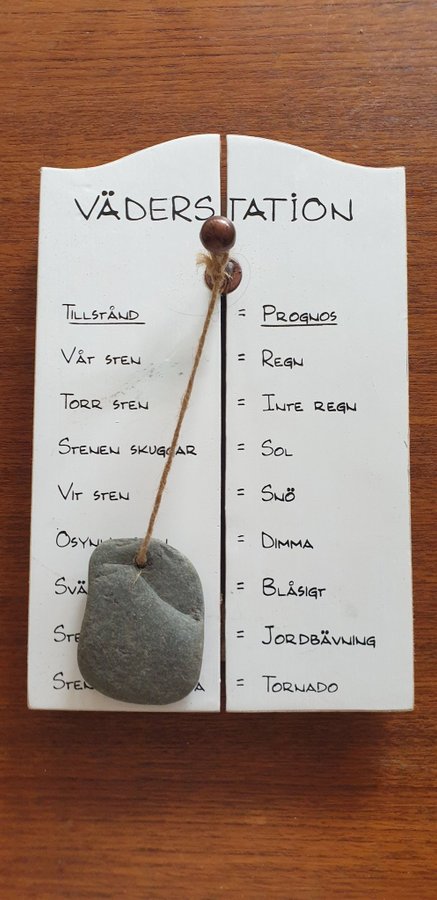 VÄDERSTATION
TILLSTÅND = PROGNOS
VÅT STEN = REGN
TORR STEN = INTE REGN
STENEN SKUGGAR = SOL
VIT STEN = SNÖ
= DIMMA
= BLÅSIGT
= JORDBÄVNING
= TORNADO